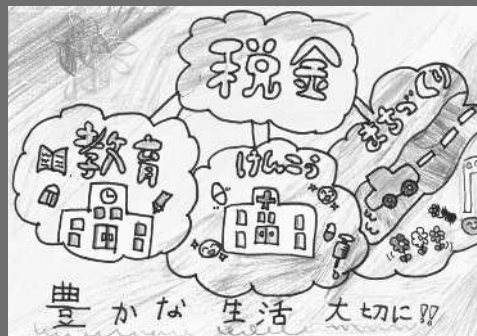 税金
教育
けんこう
まちづくり
豊かな 生活 大切に!!